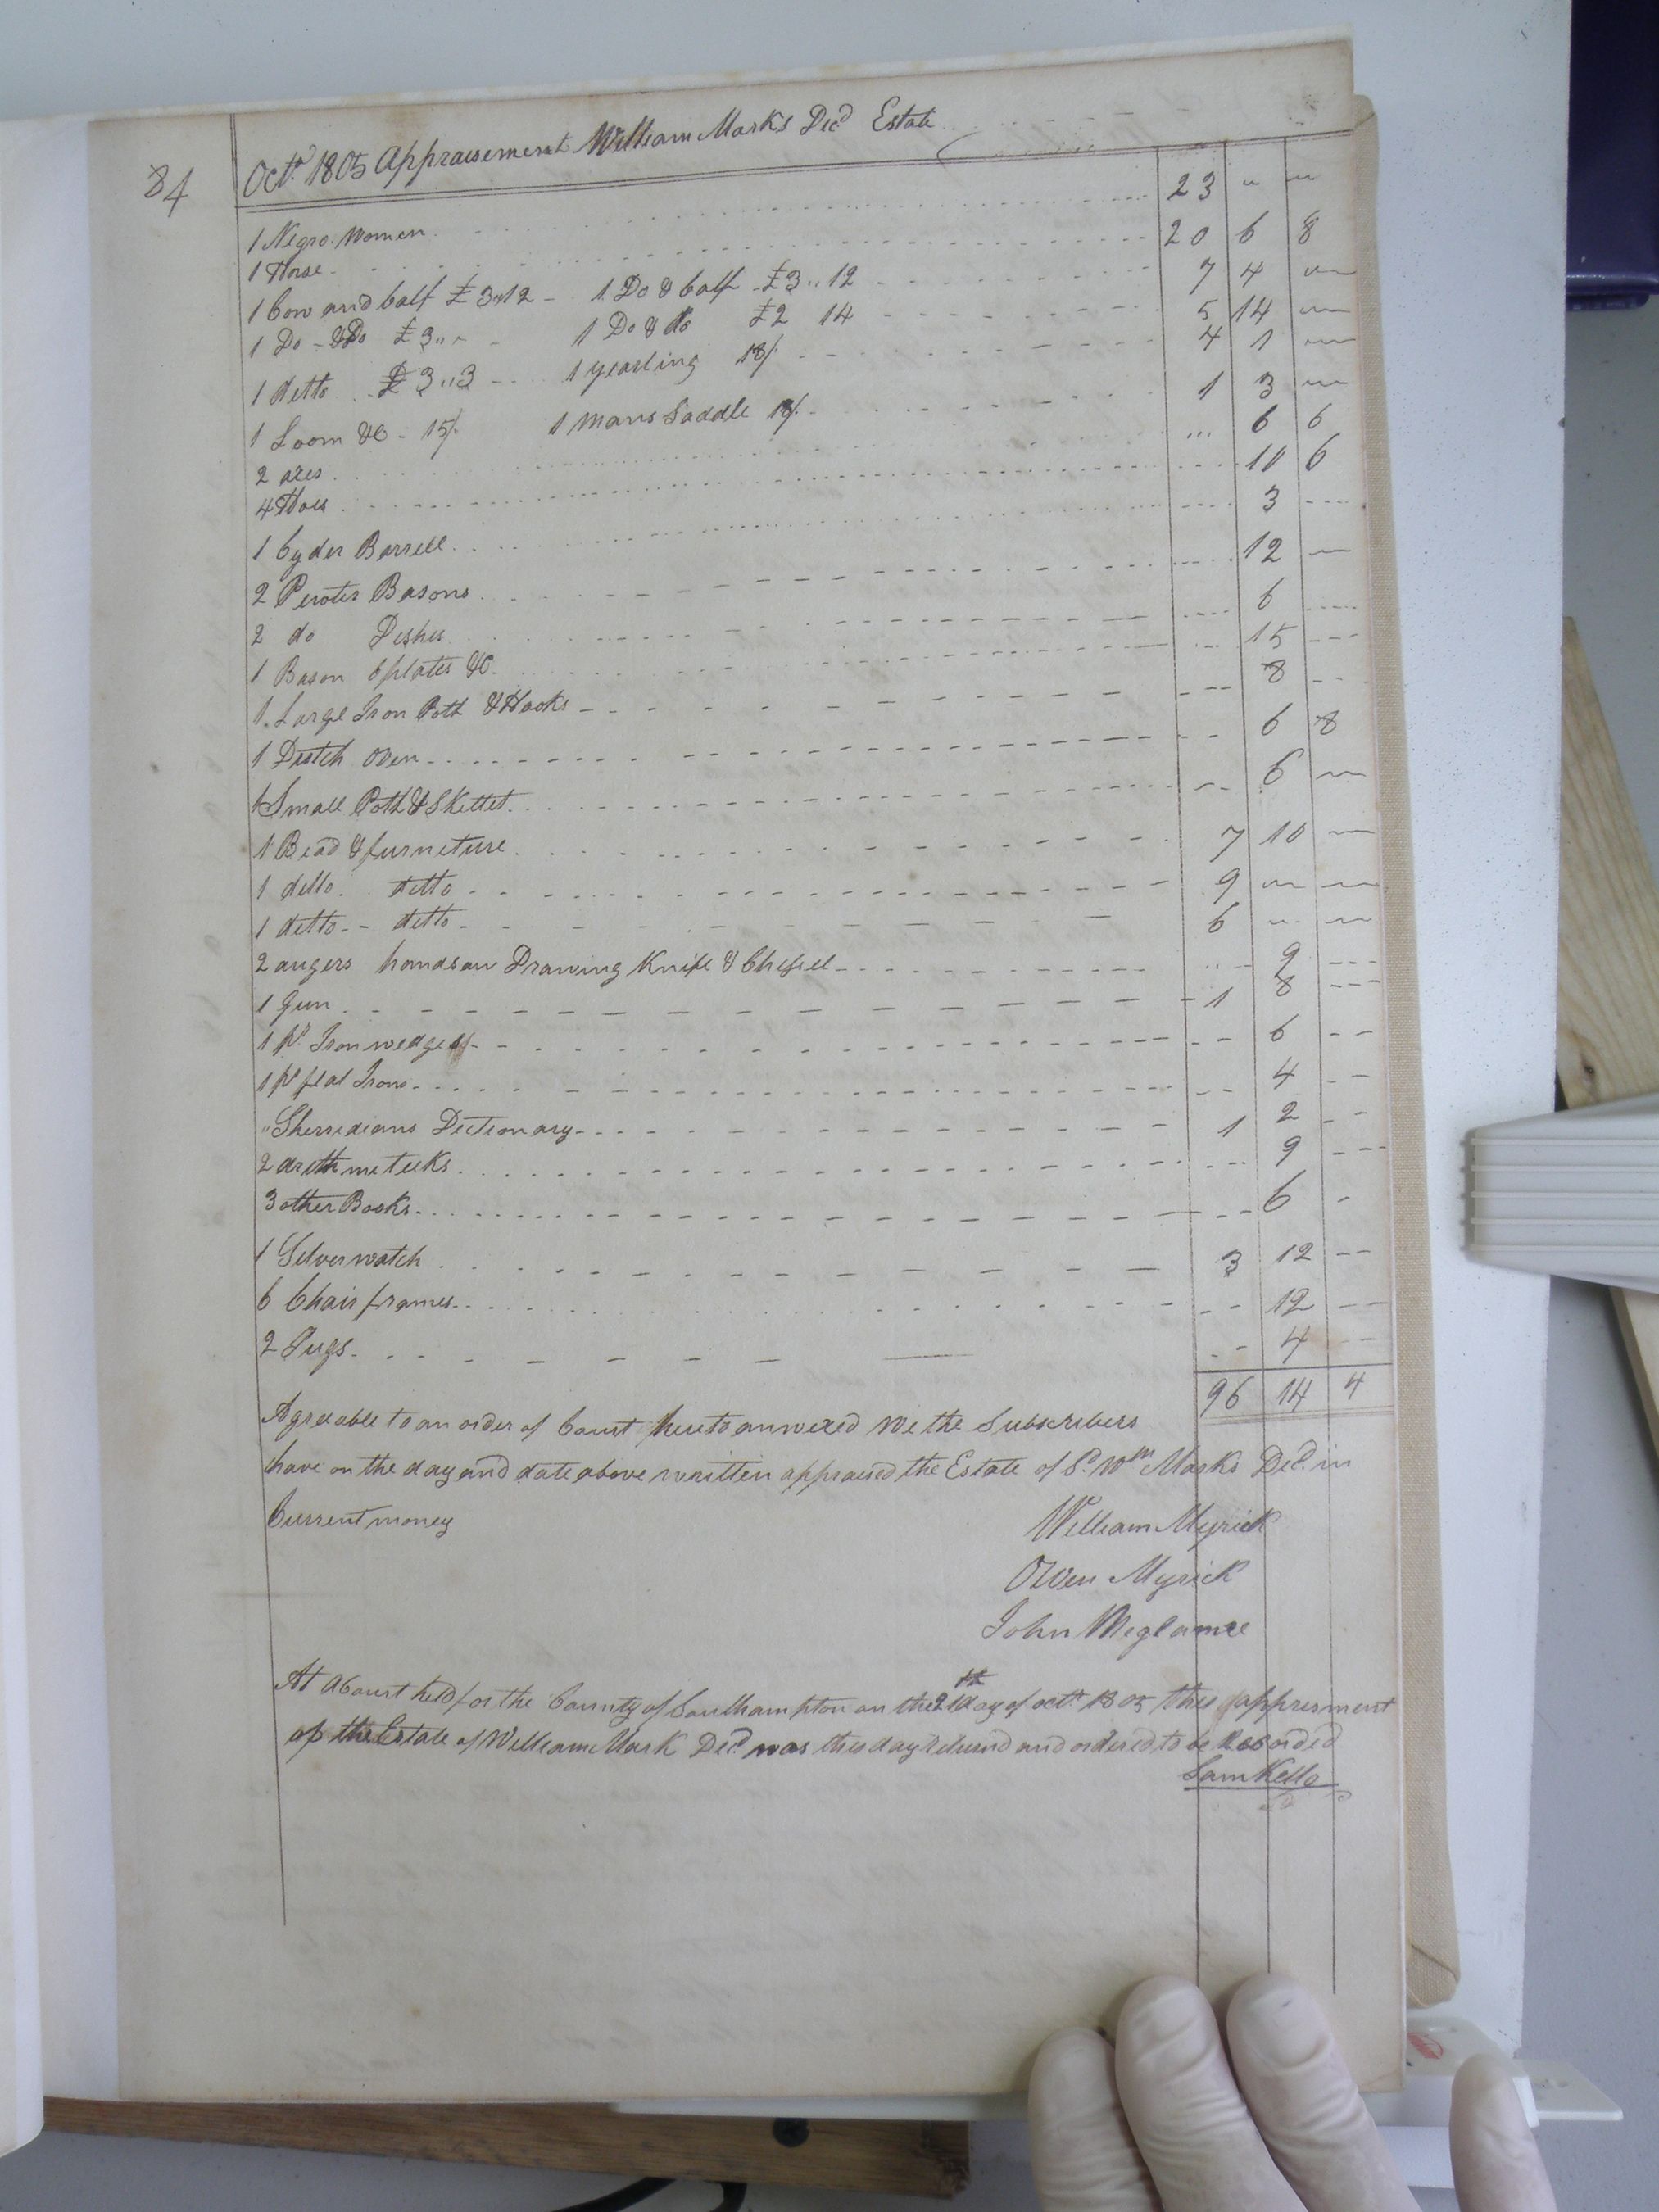 84
Octr. 1805 Appraisement William Marks Decd Estate
1 Negro Women 23 " "
1 Horse 20 6 8
1 Cow and Calf £3"12 - 1 Do & Calf £3"12 7 4 "
1 Do - & Do £3"" - 1 Do & do £2 14 5 14 "
1 detto £3"3 - 1 yearling 18/ 4 1 "
1 Loom &C - 15/. 1 mans Saddle 18/. 1 3 "
2 axes ... 6 6
4 Hoes ... 10 6
1 Cyder Barrell 3
2 Pewter Basons 12
2 do Dishes 6
1 Bason 6 plates &C 15
1 Large Iron Pott & Hooks 8
1 Dutch Oven 6 8
1 Small Pott & Skettet 6
1 Bead & furneture 7 10
1 detto detto 9 " "
1 detto - - detto 6 " "
2 augers handsaw Drawing Knife & Chesell 9
1 Gun 1 8
1 pr. Iron wedges 6
1 pr flat Irons 4
" Sherredians Dictionary 1 2
2 arithmeteeks 9
3 other Books 6
1 Silver watch 3 12
6 Chair frames 12
2 Jugs 4
96 14 4
Agreeable to an order of Court hereto annexed We the Subscribers
have on the day and date above written appraised the Estate of Sd. Wm Marks Decd. in
Current money
William Myrick
Owen Myrick
John Meglamre
At a Court held for the County of Southampton on the 21st day of octr. 1805 this appresment
of the Estate of William Mark Decd. was this day returnd and ordered to be Recorded
Sam Kello